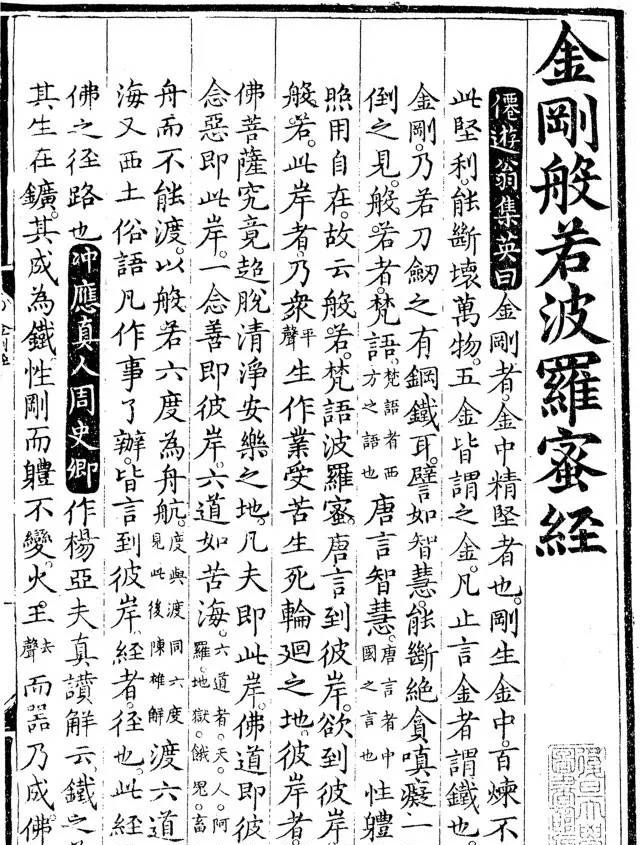 金剛般若波羅蜜經
僊遊翁集英曰金剛者。金中精堅者也。剛生金中。百煉不
此堅利。能斷壞萬物。五金皆謂之金。凡止言金者謂鐵也。
金剛。乃若刀劒之有鋼鐵耳。譬如智慧。能斷絕貪嗔癡一
倒之見。般若者。梵語。梵語者西方之語也唐言智慧。唐言者中國之言也性體
照用自在。故云般若。梵語波羅蜜。唐言到彼岸。欲到彼岸
般若。此岸者。乃衆平聲生作業受苦生死輪廻之地。彼岸者
佛菩薩究竟超脫清淨安樂之地。凡夫即此岸。佛道即彼
念惡即此岸。一念善即彼岸。六道如苦海。六道者。天。人。阿羅。地獄。餓鬼。畜
舟而不能渡。以般若六度為舟航。度與渡同六度見此後陳雄解渡六道
海又西土俗語凡作事了辦。皆言到彼岸。經者。徑也。此經
佛之徑路也冲應真人周史卿作楊亞夫真讚解云。鐵之
其生在鑛。其成為鐵。性剛而體不變。火王去聲而器乃成。佛